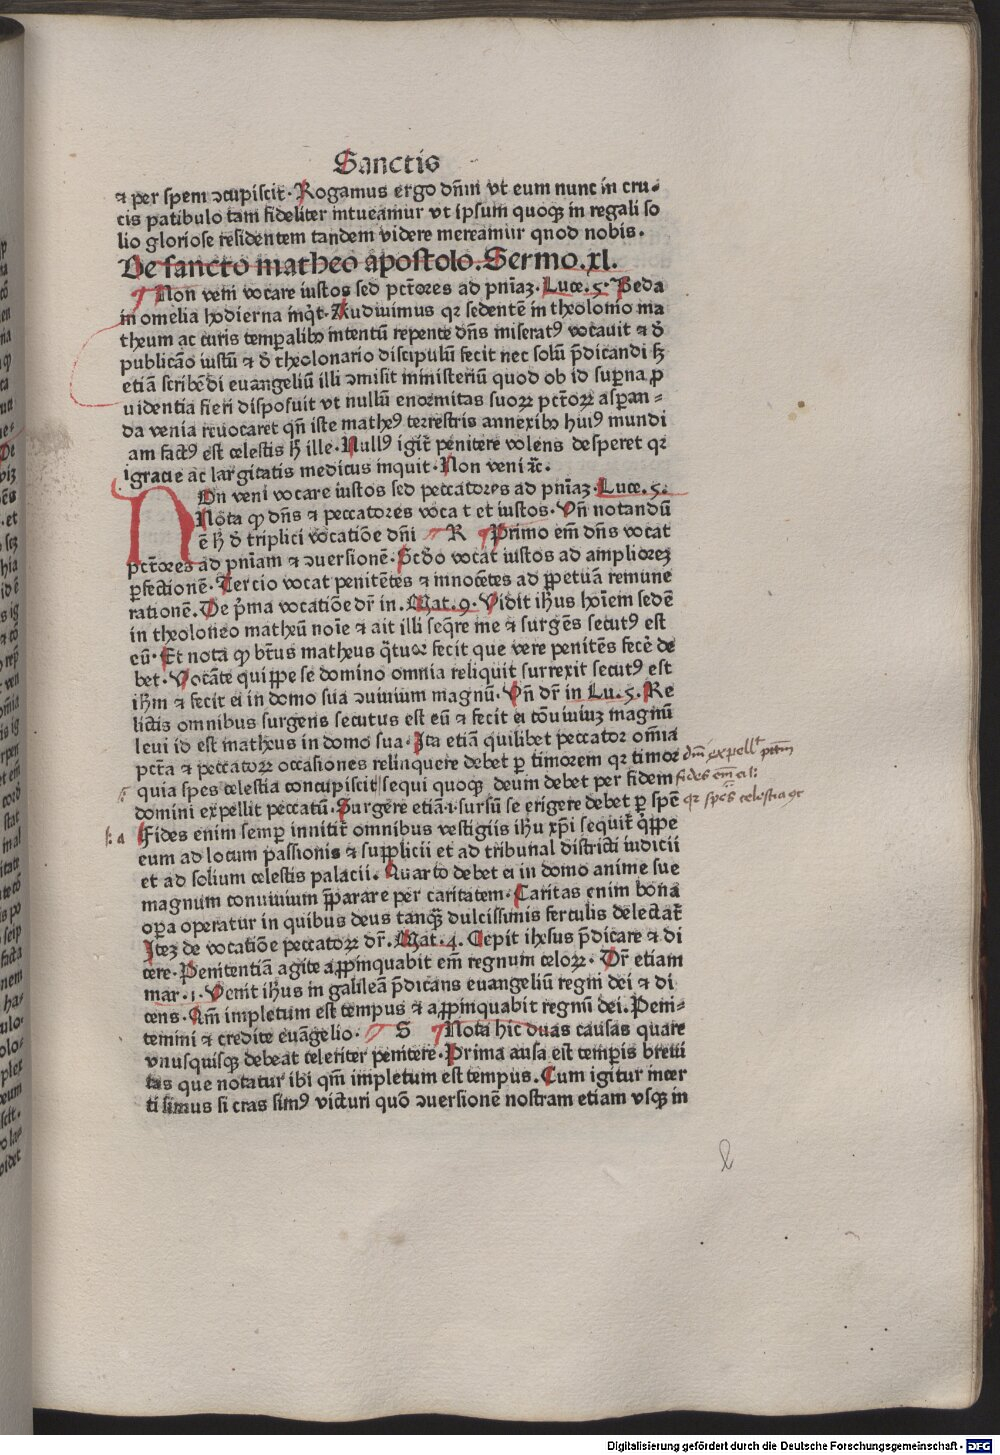 Sanctis
⁊ per spem ↄcupiscit. Rogamus ergo dn̄m vt eum nunc in cru-
cis patibulo tam fideliter intueamur vt ipsum quoqꝫ in regali so
lio gloriose residentem tandem videre mereamur quod nobis.
De sancto matheo apostolo. Sermo. xl.
Non veni vocare iustos sed pctōres ad pn̄iaꝫ. Luce. 5. Beda
in omelia hodierna inq̇t. Audiuimus qꝛ sedentē in theolonio ma
theum ac curis temꝑalibꝰ intentū repente dn̄s miseratꝰ vocauit ⁊ đ
publicāo iustū ⁊ đ theolonario discipulū fecit nec solū p̄dicandi sꝫ
etiā scribēdi euangeliū illi ↄmisit ministeriū quod ob id suꝑna ꝓ
uidentia fieri disposuit vt nullū enormitas suoꝝ pctōꝝ asꝑan-
da venia reuocaret qn̄ iste matheꝰ terrestris annexibꝰ huiꝰ mundi
am factꝰ est celestis ħ ille. Nullꝰ igit᷑ penitere volens desperet qꝛ
igracie ac largitatis medicus inquit. Non veni ⁊c̄.
NOn veni vocare iustos sed peccatores ad pn̄iaꝫ. Luce. 5.
Nota ꝙ dn̄s ⁊ peccatores voca t et iustos. Vn̄ notandū
ē ħ đ triplici vocatiōe dn̄i R Primo em̄ dn̄s vocat
pctōres ad pn̄iam ⁊ ↄuersionē. Scđo vocat iustos ad ampliorez
ꝑfectionē. Tercio vocat penitētes ⁊ innocētes ad ꝑpetuā remune
rationē. De p̄ma vocatiōe dr̄ in. Mat. 9. Vidit ih̄us hoīem sedē
in theoloneo matheū noīe ⁊ ait illi seq̄re me ⁊ surgēs secutꝰ est
eū. Et nota ꝙ bt̄us matheus q̇tuor fecit que vere penitēs fecē de
bet. Vocāte quippe se domino omnia reliquit surrexit secutꝰ est
ih̄m ⁊ fecit ei in domo sua ↄuiuium magnū. Vn̄ dr̄ in Lu. 5. Re
lictis omnibus surgens secutus est eū ⁊ fecit ei cōuiuiuꝫ magnū
leui id est matheus in domo sua. Ita etiā quilibet peccator om̄ia
pctā ⁊ peccatoꝝ occasiones relinquere debet ꝑ timorem qꝛ timor
quia spes celestia concupiscit sequi quoqꝫ deum debet per fidem
domini expellit peccatū. Surgere etiā .i. sursū se erigere debet ꝑ spē
Fides enim semper innitit᷑ omnibus vestigiis ih̄u xp̄i sequit᷑ q̇ppe
eum ad locum passionis ⁊ supplicii et ad tribunal districti iudicii
et ad solium celestis palacii. Quarto debet ei in domo anime sue
magnum conuiuium p̄parare per caritatem. Caritas enim bona
oꝑa operatur in quibus deus tanqꝫ dulcissimis ferculis delectat᷑
Iteꝫ de vocatiōe peccatoꝝ dr̄. Mat. 4. Cepit ihesus p̄dicare ⁊ di
cere. Penitentiā agite appinquabit em̄ regnum celoꝝ. Dr̄ etiam
mar. 1. Venit ih̄us in galileā p̄dicans euangeliū regni dei ⁊ di
cens. Qm̄ impletum est tempus ⁊ appinquabit regnū dei. Peni-
temini ⁊ credite euāgelio. S Nota hic duas causas quare
vnusquisqꝫ debeat celeriter penitere. Prima ausa est temꝑis breui
tas que notatur ibi qm̄ impletum est tempus. Cum igitur incer
ti simus si cras simꝰ victuri quō ↄuersionē nostram etiam vsqꝫ in
Digitalisierung gefördert durch die Deutsche Forschungsgemeinschaft - DFG